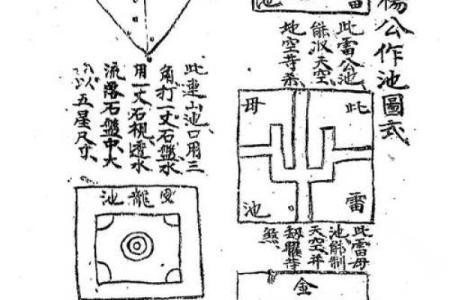 楊公作池圖式
池
此雷公池
能收天空
地空等煞
此雷
母池
此雷母
池能制
天空并
刼羅等
煞
金
此連山池口用三
角打一丈石盤水
用一丈石視透水
流落石盤中大
以五星尺寸
龍池